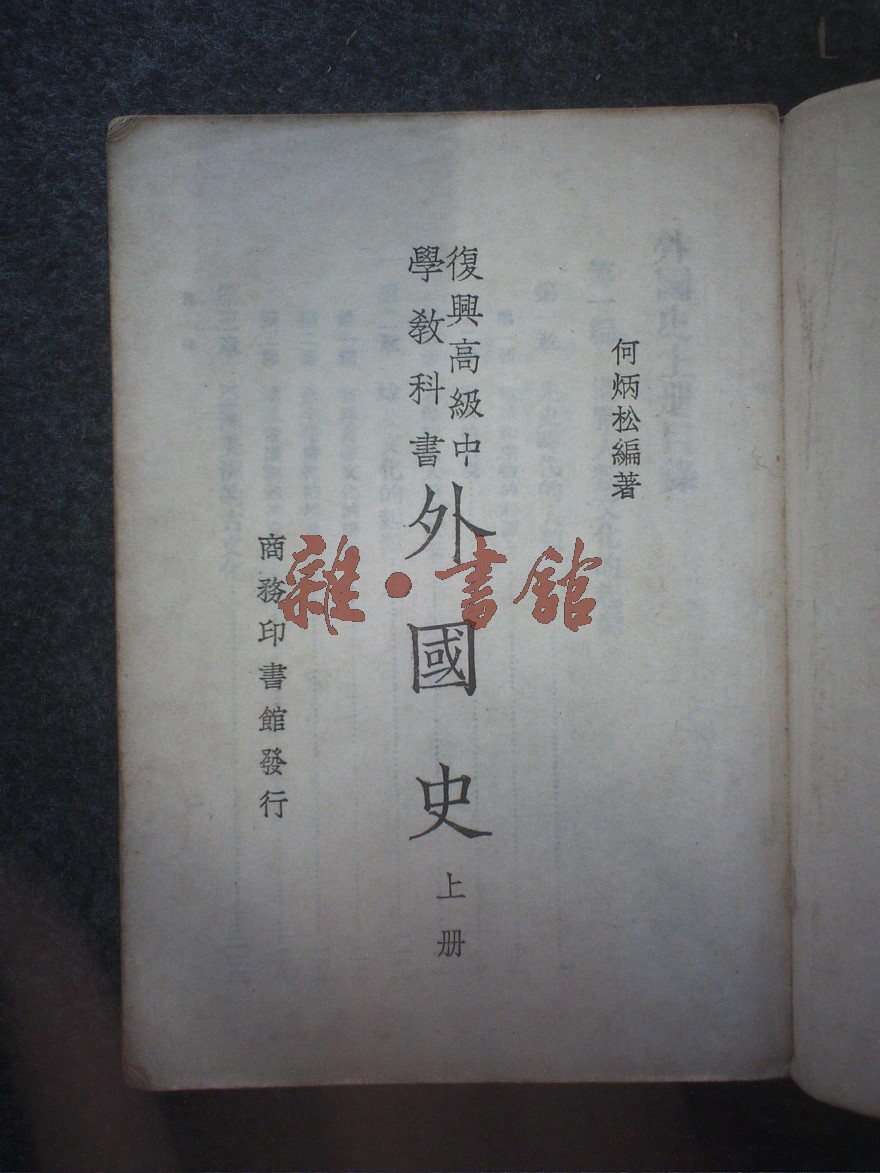 何炳松編著
復興高級中
學教科書
外國史
上册
商務印書館發行
雜·書館